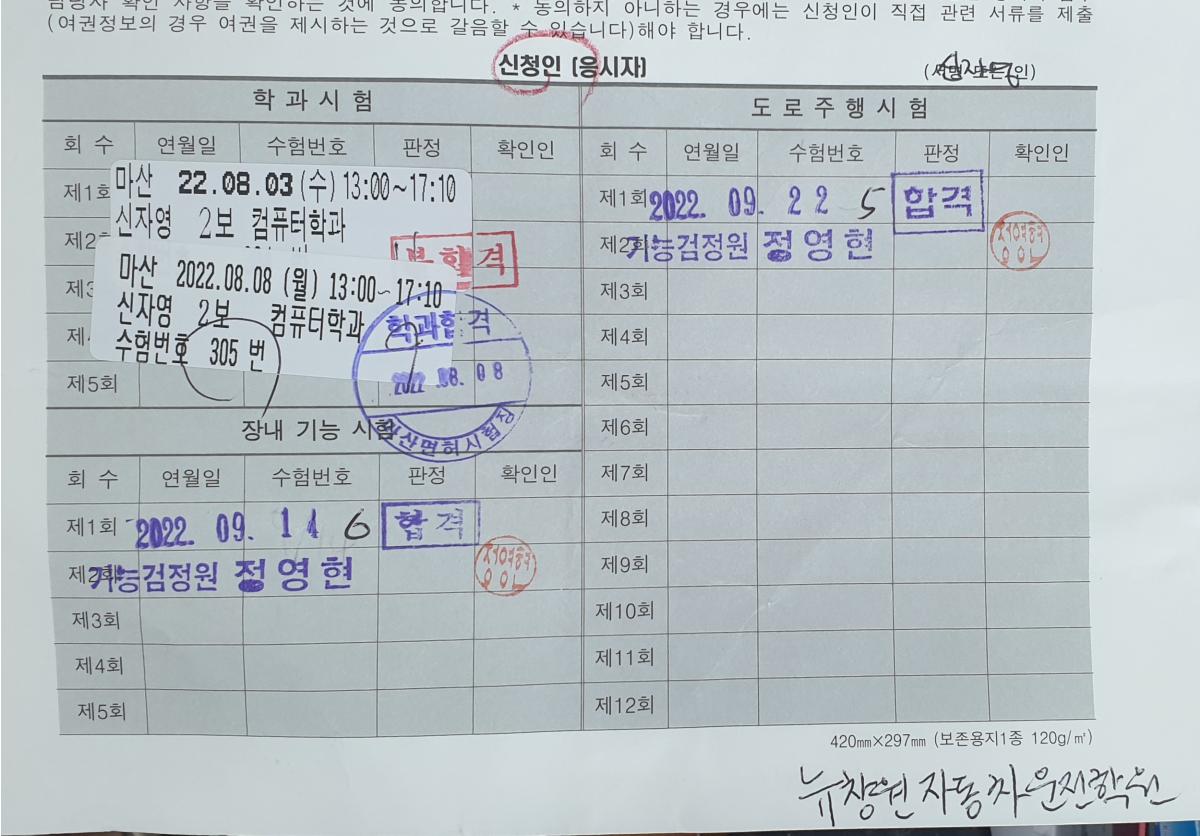 확인 사항을 확인하는 것에 동의합니다. * 동의하지 아니하는 경우에는 신청인이 직접 관련 서류를 제출
(여권정보의 경우 여권을 제시하는 것으로 갈음할 수 있습니다)해야 합니다.
신청인 (응시자)
학과시험
회 수 연월일 수험번호 판정 확인인
제1회
마산 22.08.03 (수) 13:00~17:10
신자영 2보 컴퓨터학과
불합격
마산 2022.08.08 (월) 13:00~17:10
신자영 2보 컴퓨터학과
수험번호 305 번
학과합격
2022.08.08
마산면허시험장
제5회
장내 기능 시험
회 수 연월일 수험번호 판정 확인인
제1회 2022. 09. 14 6 합격
제2회 기능검정원 정영현
제3회
제4회
제5회
도로주행시험
회 수 연월일 수험번호 판정 확인인
제1회 2022. 09. 22 5 합격
제2회 기능검정원 정영현
제3회
제4회
제5회
제6회
제7회
제8회
제9회
제10회
제11회
제12회
420㎜×297㎜ (보존용지1종 120g/㎡)
뉴창원자동차운전학원